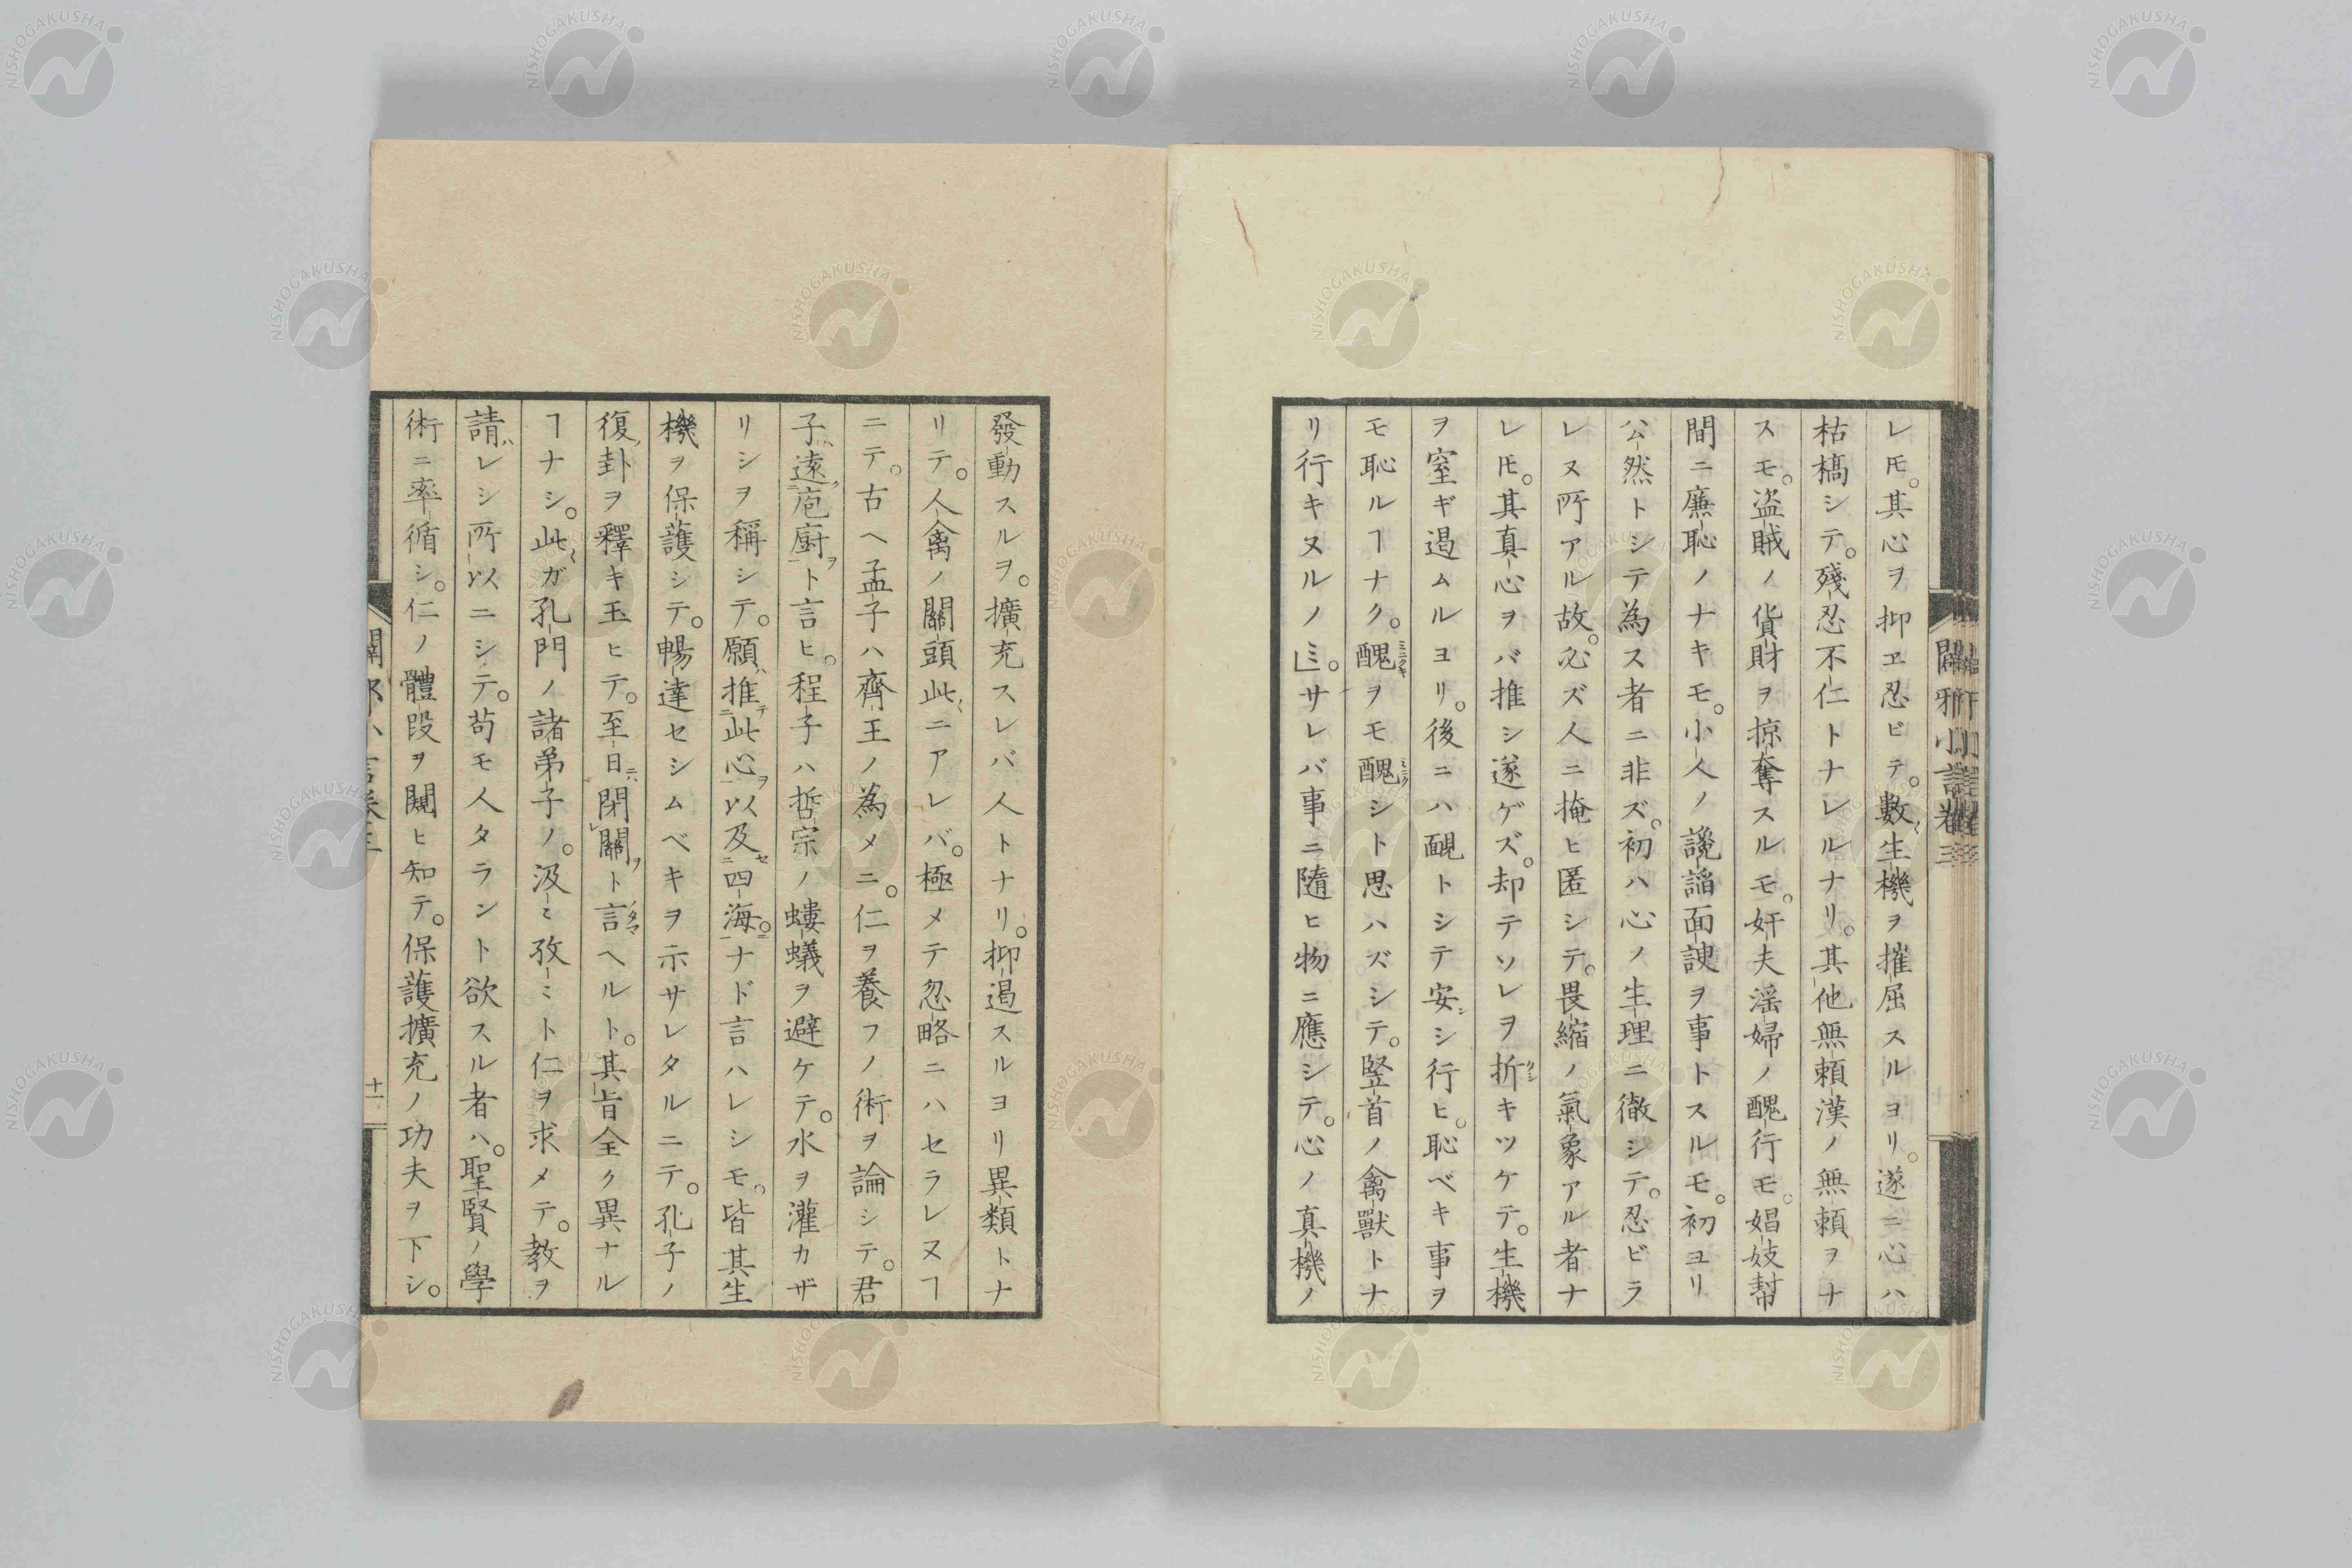 レ𪜈。其心ヲ抑ヱ忍ビテ。數生機ヲ摧屈スルヨリ。遂ニ心ハ
枯槁シテ。殘忍不仁トナレルナリ。其他無頼漢ノ無頼ヲナ
スモ。盗賊ノ貨財ヲ掠奪スルモ。奸夫淫婦ノ醜行モ。娼妓幇
間ニ廉恥ノナキモ。小人ノ讒謟面諛ヲ事トスルモ。初ヨリ
公然トシテ為ス者ニ非ズ。初ハ心ノ生理ニ徹シテ。忍ビラ
レヌ所アル故。必ズ人ニ掩ヒ匿シテ。畏縮ノ氣象アル者ナ
レ𪜈。其真心ヲバ推シ遂ゲズ。却テソレヲ折キツケテ。生機
ヲ窒ギ遏ムルヨリ。後ニハ靦トシテ安シ行ヒ。恥ベキ事ヲ
モ恥ルヿナク。醜ヲモ醜シト思ハズシテ。竪首ノ禽獸トナ
リ行キヌルノミ。サレバ事ニ隨ヒ物ニ應シテ。心ノ真機ノ
闢邪小言卷三
發動スルヲ。擴充スレバ人トナリ。抑遏スルヨリ異類トナ
リテ。人禽ノ關頭此ニアレバ。極メテ忽略ニハセラレヌヿ
ニテ。古ヘ孟子ハ齊王ノ為メニ。仁ヲ養フノ術ヲ論シテ。君
子遠庖廚ト言ヒ。程子ハ哲宗ノ螻蟻ヲ避ケテ。水ヲ灌カザ
リシヲ稱シテ。願推此心以及四海。ナド言ハレシモ。皆其生
機ヲ保護シテ。暢達セシムベキヲ示サレタルニテ。孔子ノ
復卦ヲ釋キ玉ヒテ。至日閉關ト言ヘルト。其旨全ク異ナル
ヿナシ。此ガ孔門ノ諸弟子ノ。汲〻孜〻ト仁ヲ求メテ。教ヲ
請レシ所以ニシテ。苟モ人タラント欲スル者ハ。聖賢ノ學
術ニ率循シ。仁ノ體段ヲ闚ヒ知テ。保護擴充ノ功夫ヲ下シ。
十一
NISHOGAKUSHA